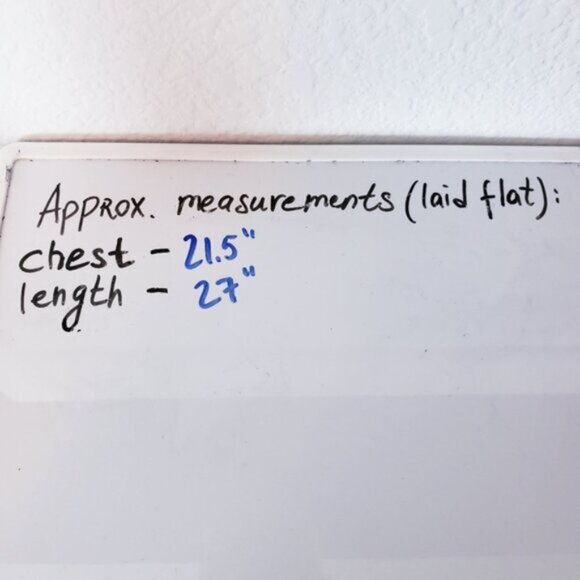 Approx. measurements (laid flat):
chest - 21.5"
length - 27"